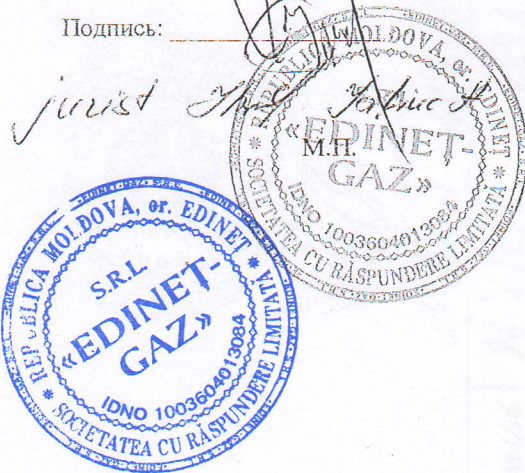 Подпись:
jurist
М.П.
REPUBLICA MOLDOVA, or. EDINEȚ
SOCIETATEA CU RĂSPUNDERE LIMITATĂ
«EDINEȚ-
GAZ»
IDNO 1003604013084
REPUBLICA MOLDOVA, or. EDINEȚ
SOCIETATEA CU RĂSPUNDERE LIMITATĂ
S.R.L.
«EDINEȚ-
GAZ»
IDNO 1003604013084